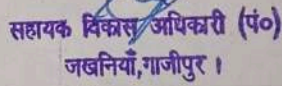 सहायक विकास अधिकारी (पं०)
जखनियाँ,गाजीपुर ।